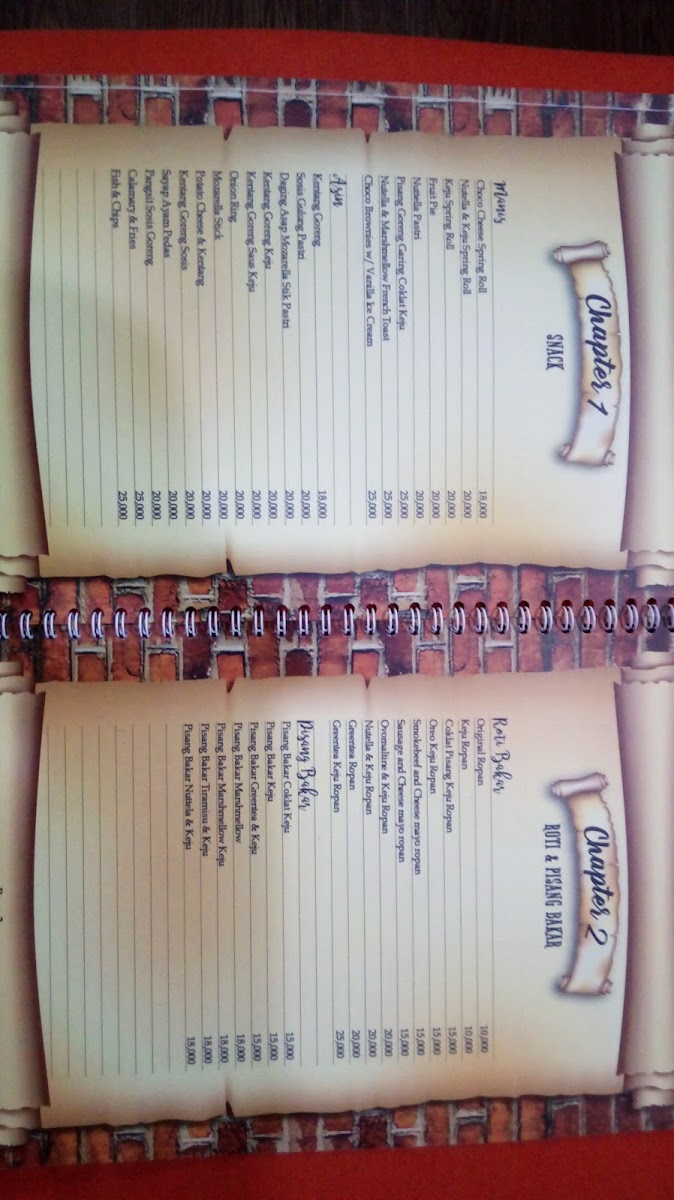 Chapter 1
SNACK
Manis
Choco Cheese Spring Roll 18,000
Nutella & Keju Spring Roll 20,000
Keju Spring Roll 20,000
Fruit Pie 20,000
Nuttella Pastri 20,000
Pisang Goreng Garing Coklat Keju 25,000
Nutella & Marshmellow French Toast 25,000
Choco Brownies w/ Vanilla Ice Cream 25,000
Asin
Kentang Goreng 18,000
Sosis Gulung Pastri 20,000
Daging Asap Mozarella Stik Pastri 20,000
Kentang Goreng Keju 20,000
Kentang Goreng Saus Keju 20,000
Onion Ring 20,000
Mozarella Stick 20,000
Potato Cheese & Kentang 20,000
Kentang Goreng Sosis 20,000
Sayap Ayam Pedas 20,000
Pangsit Sosis Goreng 20,000
Calamary & Fries 25,000
Fish & Chips 25,000
Chapter 2
ROTI & PISANG BAKAR
Roti Bakar
Original Ropan 10,000
Keju Ropan 10,000
Coklat Pisang Keju Ropan 15,000
Oreo Keju Ropan 15,000
Smokebeef and Cheese mayo ropan 15,000
Sausage and Cheese mayo ropan 15,000
Ovomaltine & Keju Ropan 20,000
Nutella & Keju Ropan 20,000
Greentea Ropan 20,000
Greentea Keju Ropan 25,000
Pisang Bakar
Pisang Bakar Coklat Keju 15,000
Pisang Bakar Keju 15,000
Pisang Bakar Greentea & Keju 15,000
Pisang Bakar Marshmellow 18,000
Pisang Bakar Marshmellow Keju 18,000
Pisang Bakar Tiramisu & Keju 18,000
Pisang Bakar Nuttela & Keju 18,000